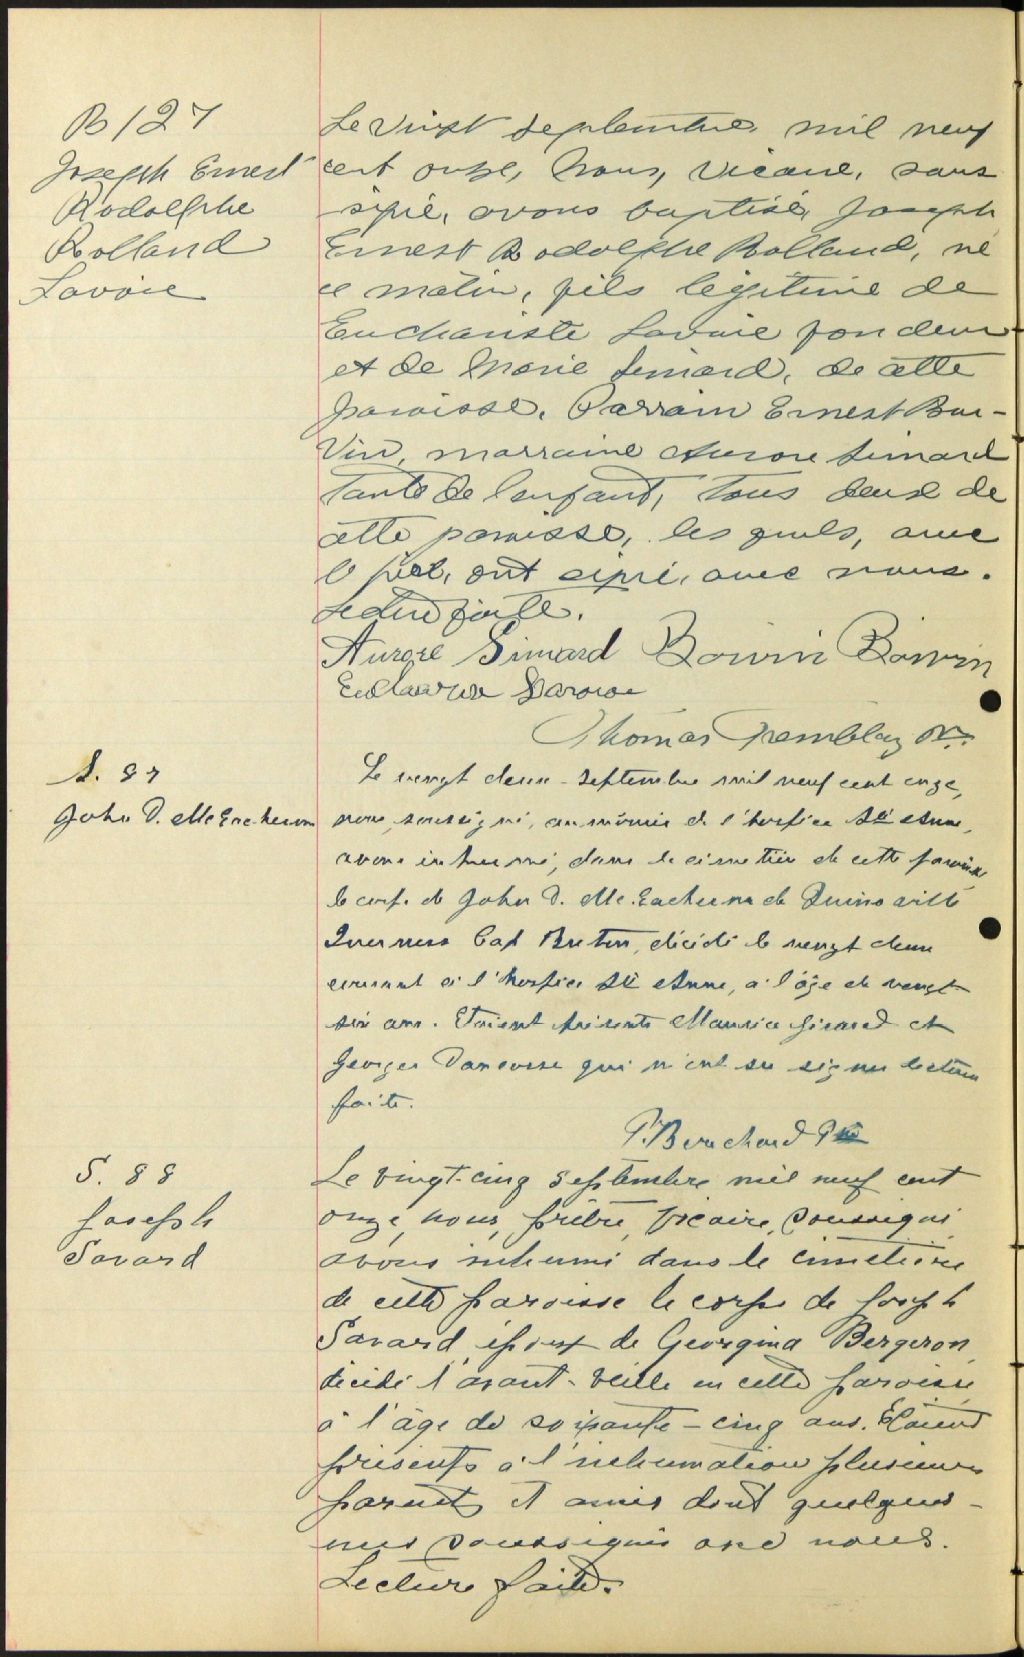 B 127
Joseph Ernest
Rodolphe
Rolland
Lavoie
Le vingt septembre mil neuf
cent onze, Nous, vicaire, sous
signé, avons baptisé, Joseph
Ernest Rodolphe Rolland, né
ce matin, fils légitime de
Euchariste Lavoie fondeur
et de Marie Simard, de cette
paroisse. Parrain Ernest Boi-
vin, marraine Aurore Simard
tante de l'enfant, tous deux de
cette paroisse, les quels, avec
le père, ont signé, avec nous.
Lecture faite.
Aurore Simard Boivin Boivin
Lavoie
Thomas Tremblay
S. 87
John D. McEachern
Le vingt deux septembre mil neuf cent onze,
nous, soussigné, aumônier de l'hospice Ste Anne,
avons inhumé, dans le cimetière de cette paroisse,
le corps de John D. Mc.Eachern de
Inverness Cap Breton, décédé le vingt deux
courant à l'hospice Ste Anne, à l'âge de vingt
six ans. Etaient présents Maurice Girard et
Georges qui n'ont su signer lecture
faite.
Bouchard Ptre
S. 88
Joseph
Savard
Le vingt-cinq septembre mil neuf cent
onze, nous, prêtre, vicaire, soussigné
avons inhumé dans le cimetière
de cette paroisse le corps de Joseph
Savard époux de Georgina Bergeron,
décédé l'avant-veille en cette paroisse
à l'âge de soixante-cinq ans. Étaient
présents à l'inhumation plusieurs
parents et amis dont quelques-
uns soussignés avec nous.
Lecture faite.